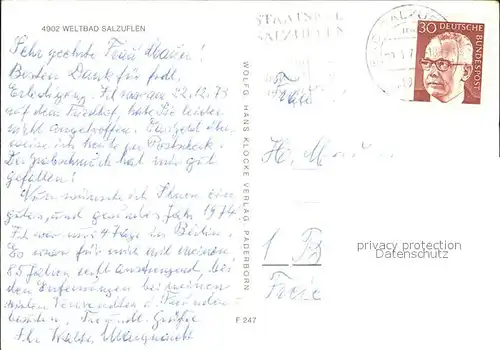 4902 WELTBAD SALZUFLEN
Sehr geehrte Frau Mauer!
Besten Dank für frdl.
Erledigung. Ich war am 22.12.73
auf dem Friedhof, habe Sie leider
nicht angetroffen. Das Geld über-
weise ich heute per Postscheck.
Der Grabschmuck hat mir gut
gefallen!
Nun wünsche ich Ihnen ein
gutes, und gesundes Jahr 1974.
Ich war nur 4 Tage in Berlin.
Es war für mich mit meinen
85 Jahren recht anstrengend, bei
den Entfernungen bei meinen
Verwandten u. Freunden
Freundl. Grüße
WOLFG. HANS KLOCKE VERLAG, PADERBORN
F 247
STAATSBAD
SALZUFLEN
30
DEUTSCHE
BUNDESPOST
Frau
1 B
privacy protection
Datenschutz